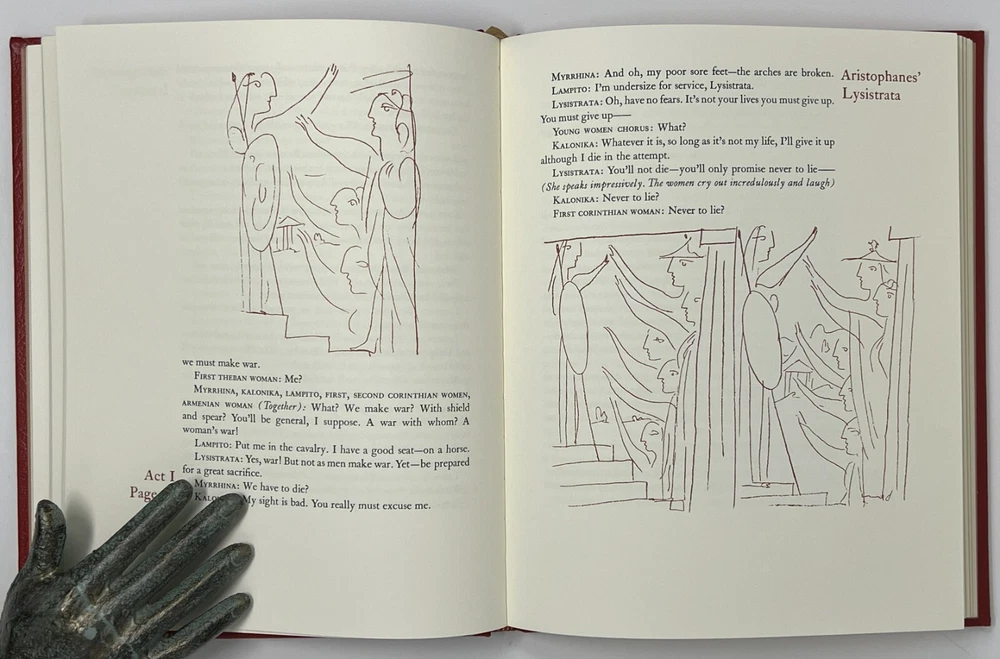 we must make war.
FIRST THEBAN WOMAN: Me?
MYRRHINA, KALONIKA, LAMPITO, FIRST, SECOND CORINTHIAN WOMEN,
ARMENIAN WOMAN (Together): What? We make war? With shield
and spear? You'll be general, I suppose. A war with whom? A
woman's war!
LAMPITO: Put me in the cavalry. I have a good seat—on a horse.
LYSISTRATA: Yes, war! But not as men make war. Yet—be prepared
for a great sacrifice.
MYRRHINA: We have to die?
My sight is bad. You really must excuse me.
Act I
Page
MYRRHINA: And oh, my poor sore feet—the arches are broken.
LAMPITO: I'm undersize for service, Lysistrata.
LYSISTRATA: Oh, have no fears. It's not your lives you must give up.
You must give up——
YOUNG WOMEN CHORUS: What?
KALONIKA: Whatever it is, so long as it's not my life, I'll give it up
although I die in the attempt.
LYSISTRATA: You'll not die—you'll only promise never to lie——
(She speaks impressively. The women cry out incredulously and laugh)
KALONIKA: Never to lie?
FIRST CORINTHIAN WOMAN: Never to lie?
Aristophanes'
Lysistrata